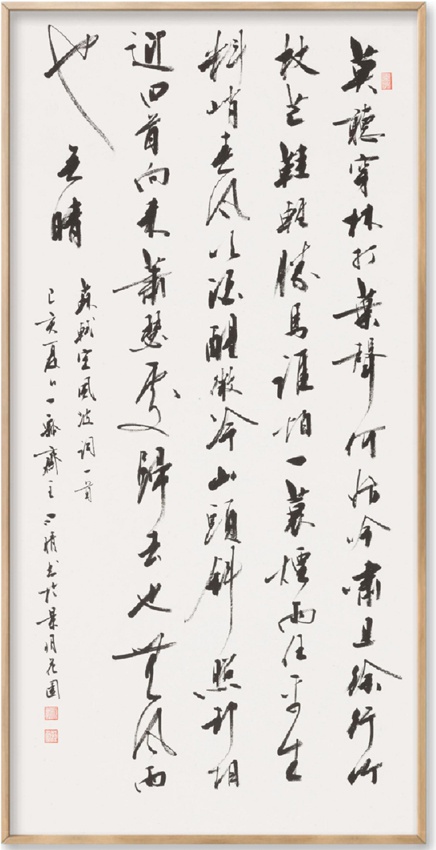 莫聽穿林打葉聲何妨吟嘯且徐行竹
杖芒鞋輕勝馬誰怕一蓑煙雨任平生
料峭春風吹酒醒微冷山頭斜照却相
迎回首向來蕭瑟處歸去也無風雨
也无晴
蘇軾定風波詞一首
己亥夏日一齋主書於景明花園